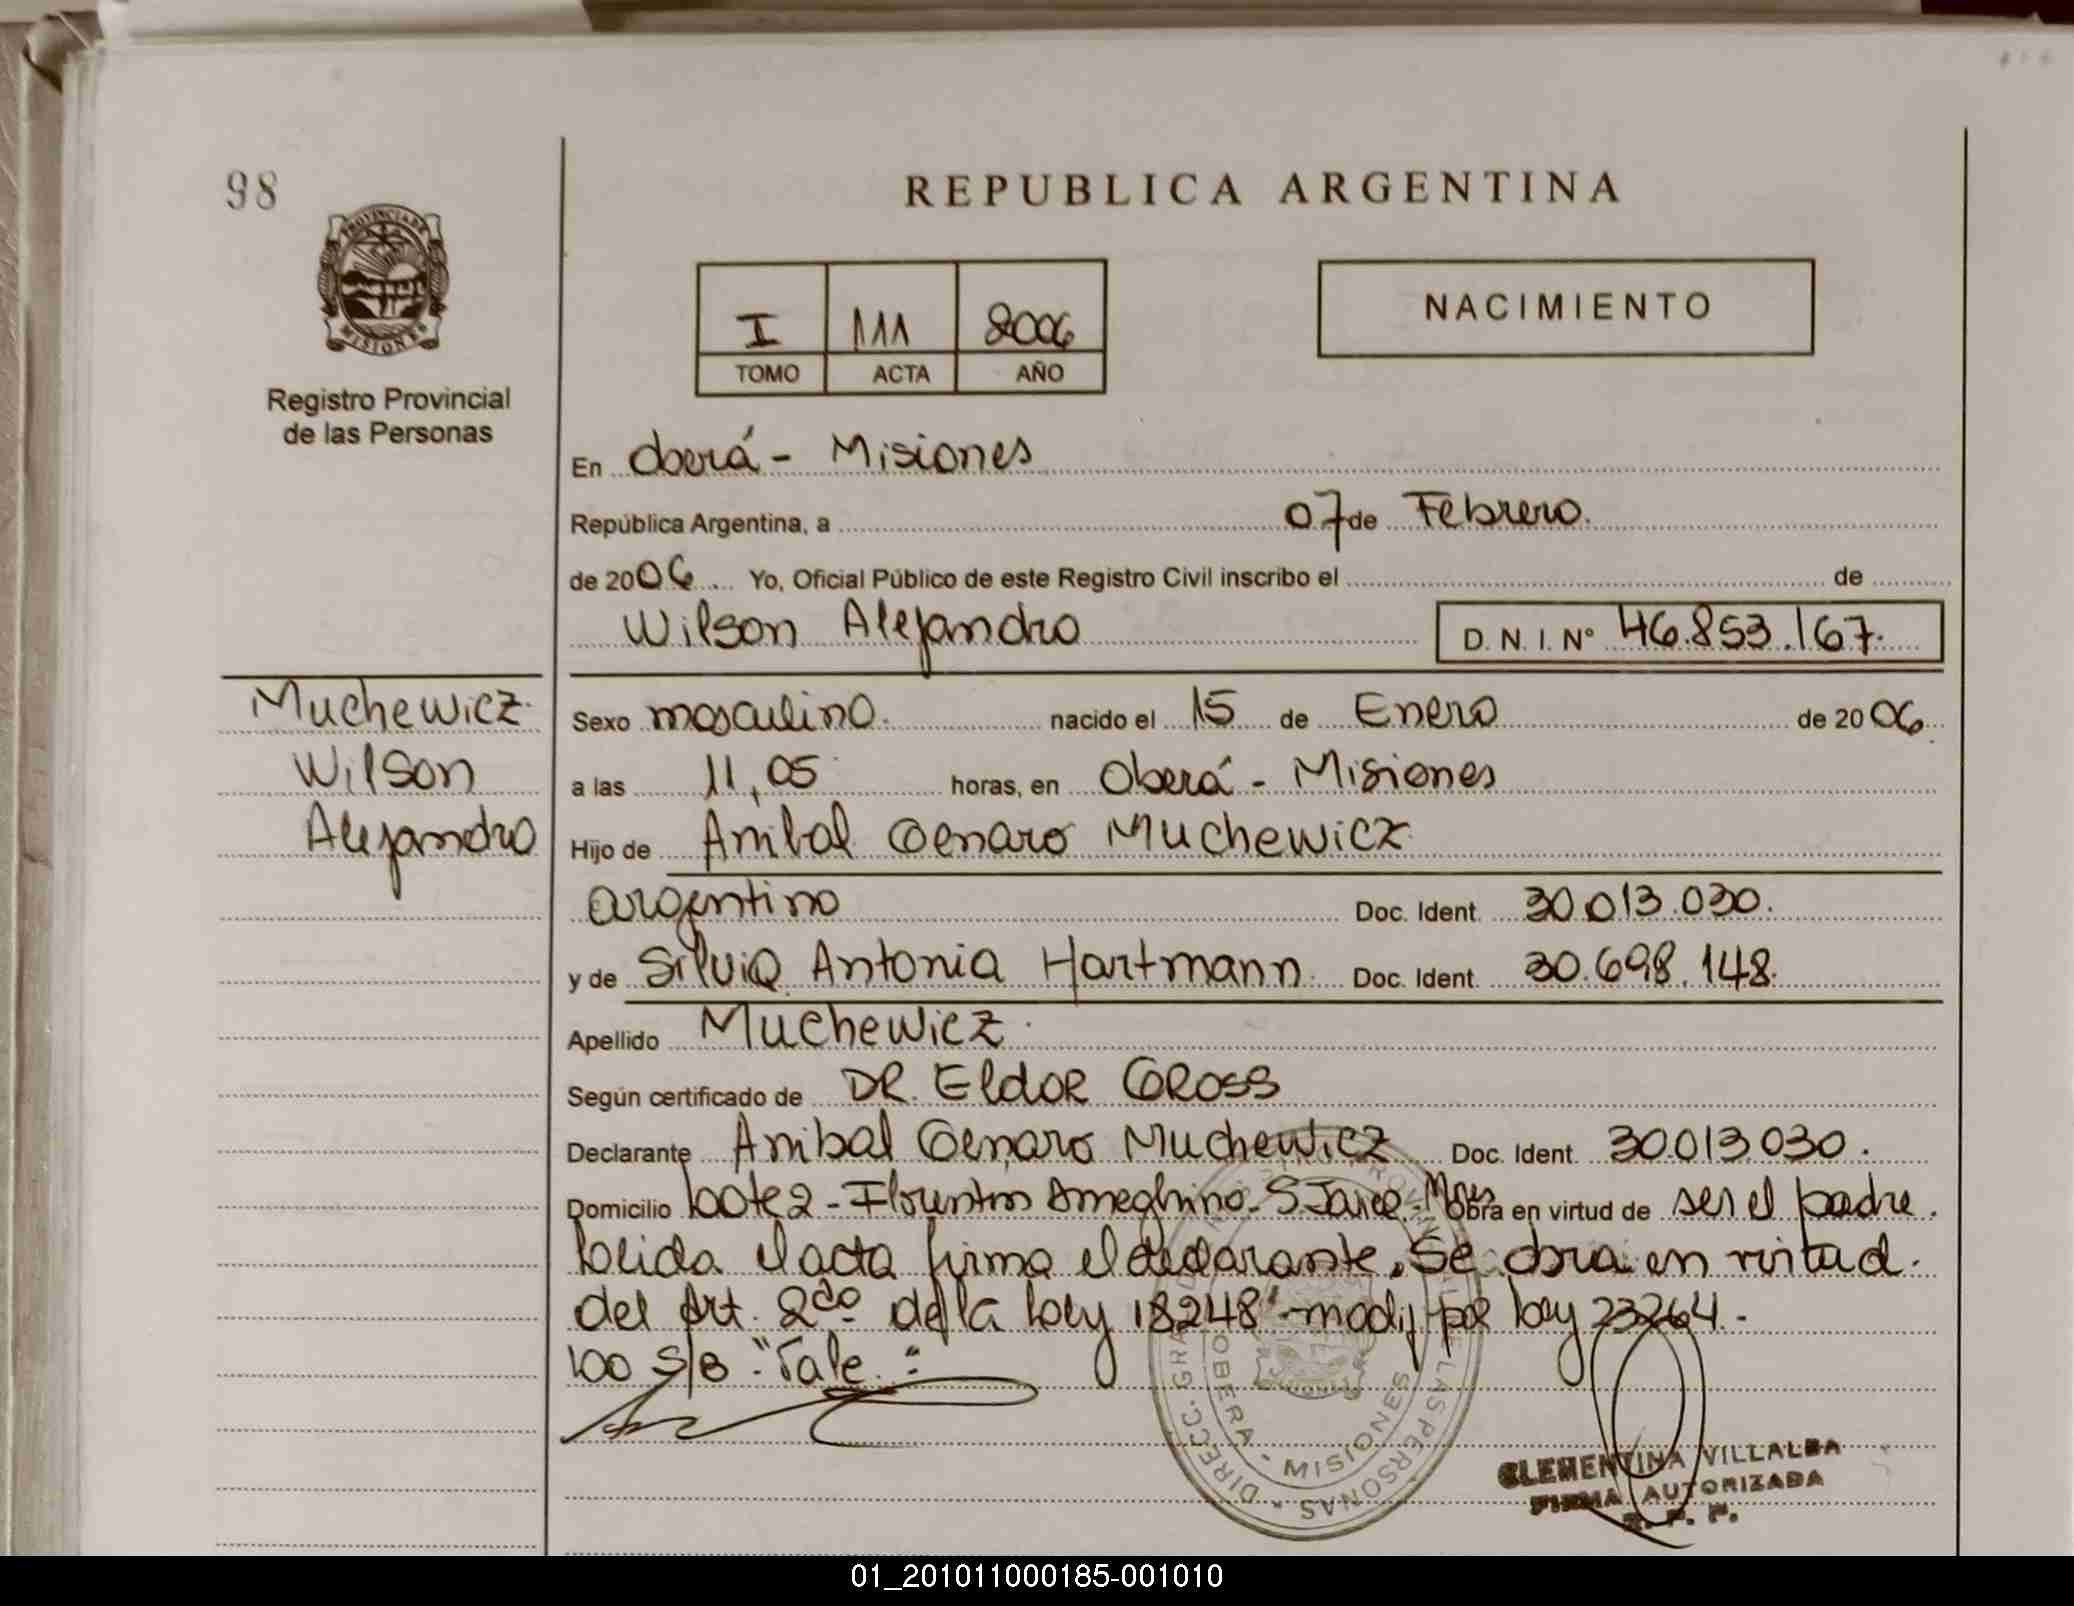 98
REPUBLICA ARGENTINA
PROVINCIA DE
MISIONES
Registro Provincial
de las Personas
I 111 2006
TOMO ACTA AÑO
NACIMIENTO
En Oberá - Misiones
República Argentina, a 07 de Febrero.
de 2006 Yo, Oficial Público de este Registro Civil inscribo el de
Wilson Alejandro D. N. I. N° 46.853.167.
Muchewicz
Wilson
Alejandro
Sexo masculino. nacido el 15 de Enero de 2006.
a las 11,05 horas, en Oberá - Misiones
Hijo de Anibal Genaro Muchewicz
argentino Doc. Ident. 30.013.030.
y de Silvia Antonia Hartmann. Doc. Ident. 30.698.148.
Apellido Muchewicz.
Según certificado de DR. Eldor GROSS
Declarante Anibal Genaro Muchewicz Doc. Ident. 30.013.030.
Domicilio Lote 2 - Florentino Ameghino - Mnes Obra en virtud de ser el padre.
Leida el acta firma el declarante. Se obra en virtud.
del Art. 2do de la Ley 18248 - modif por Ley 23264.-
100 S/B "Vale":
DIRECC. GRAL PERSONAS
OBERA - MISIONES
CLEMENTINA VILLALBA
FIRMA AUTORIZADA
R. P. P.
01_201011000185-001010